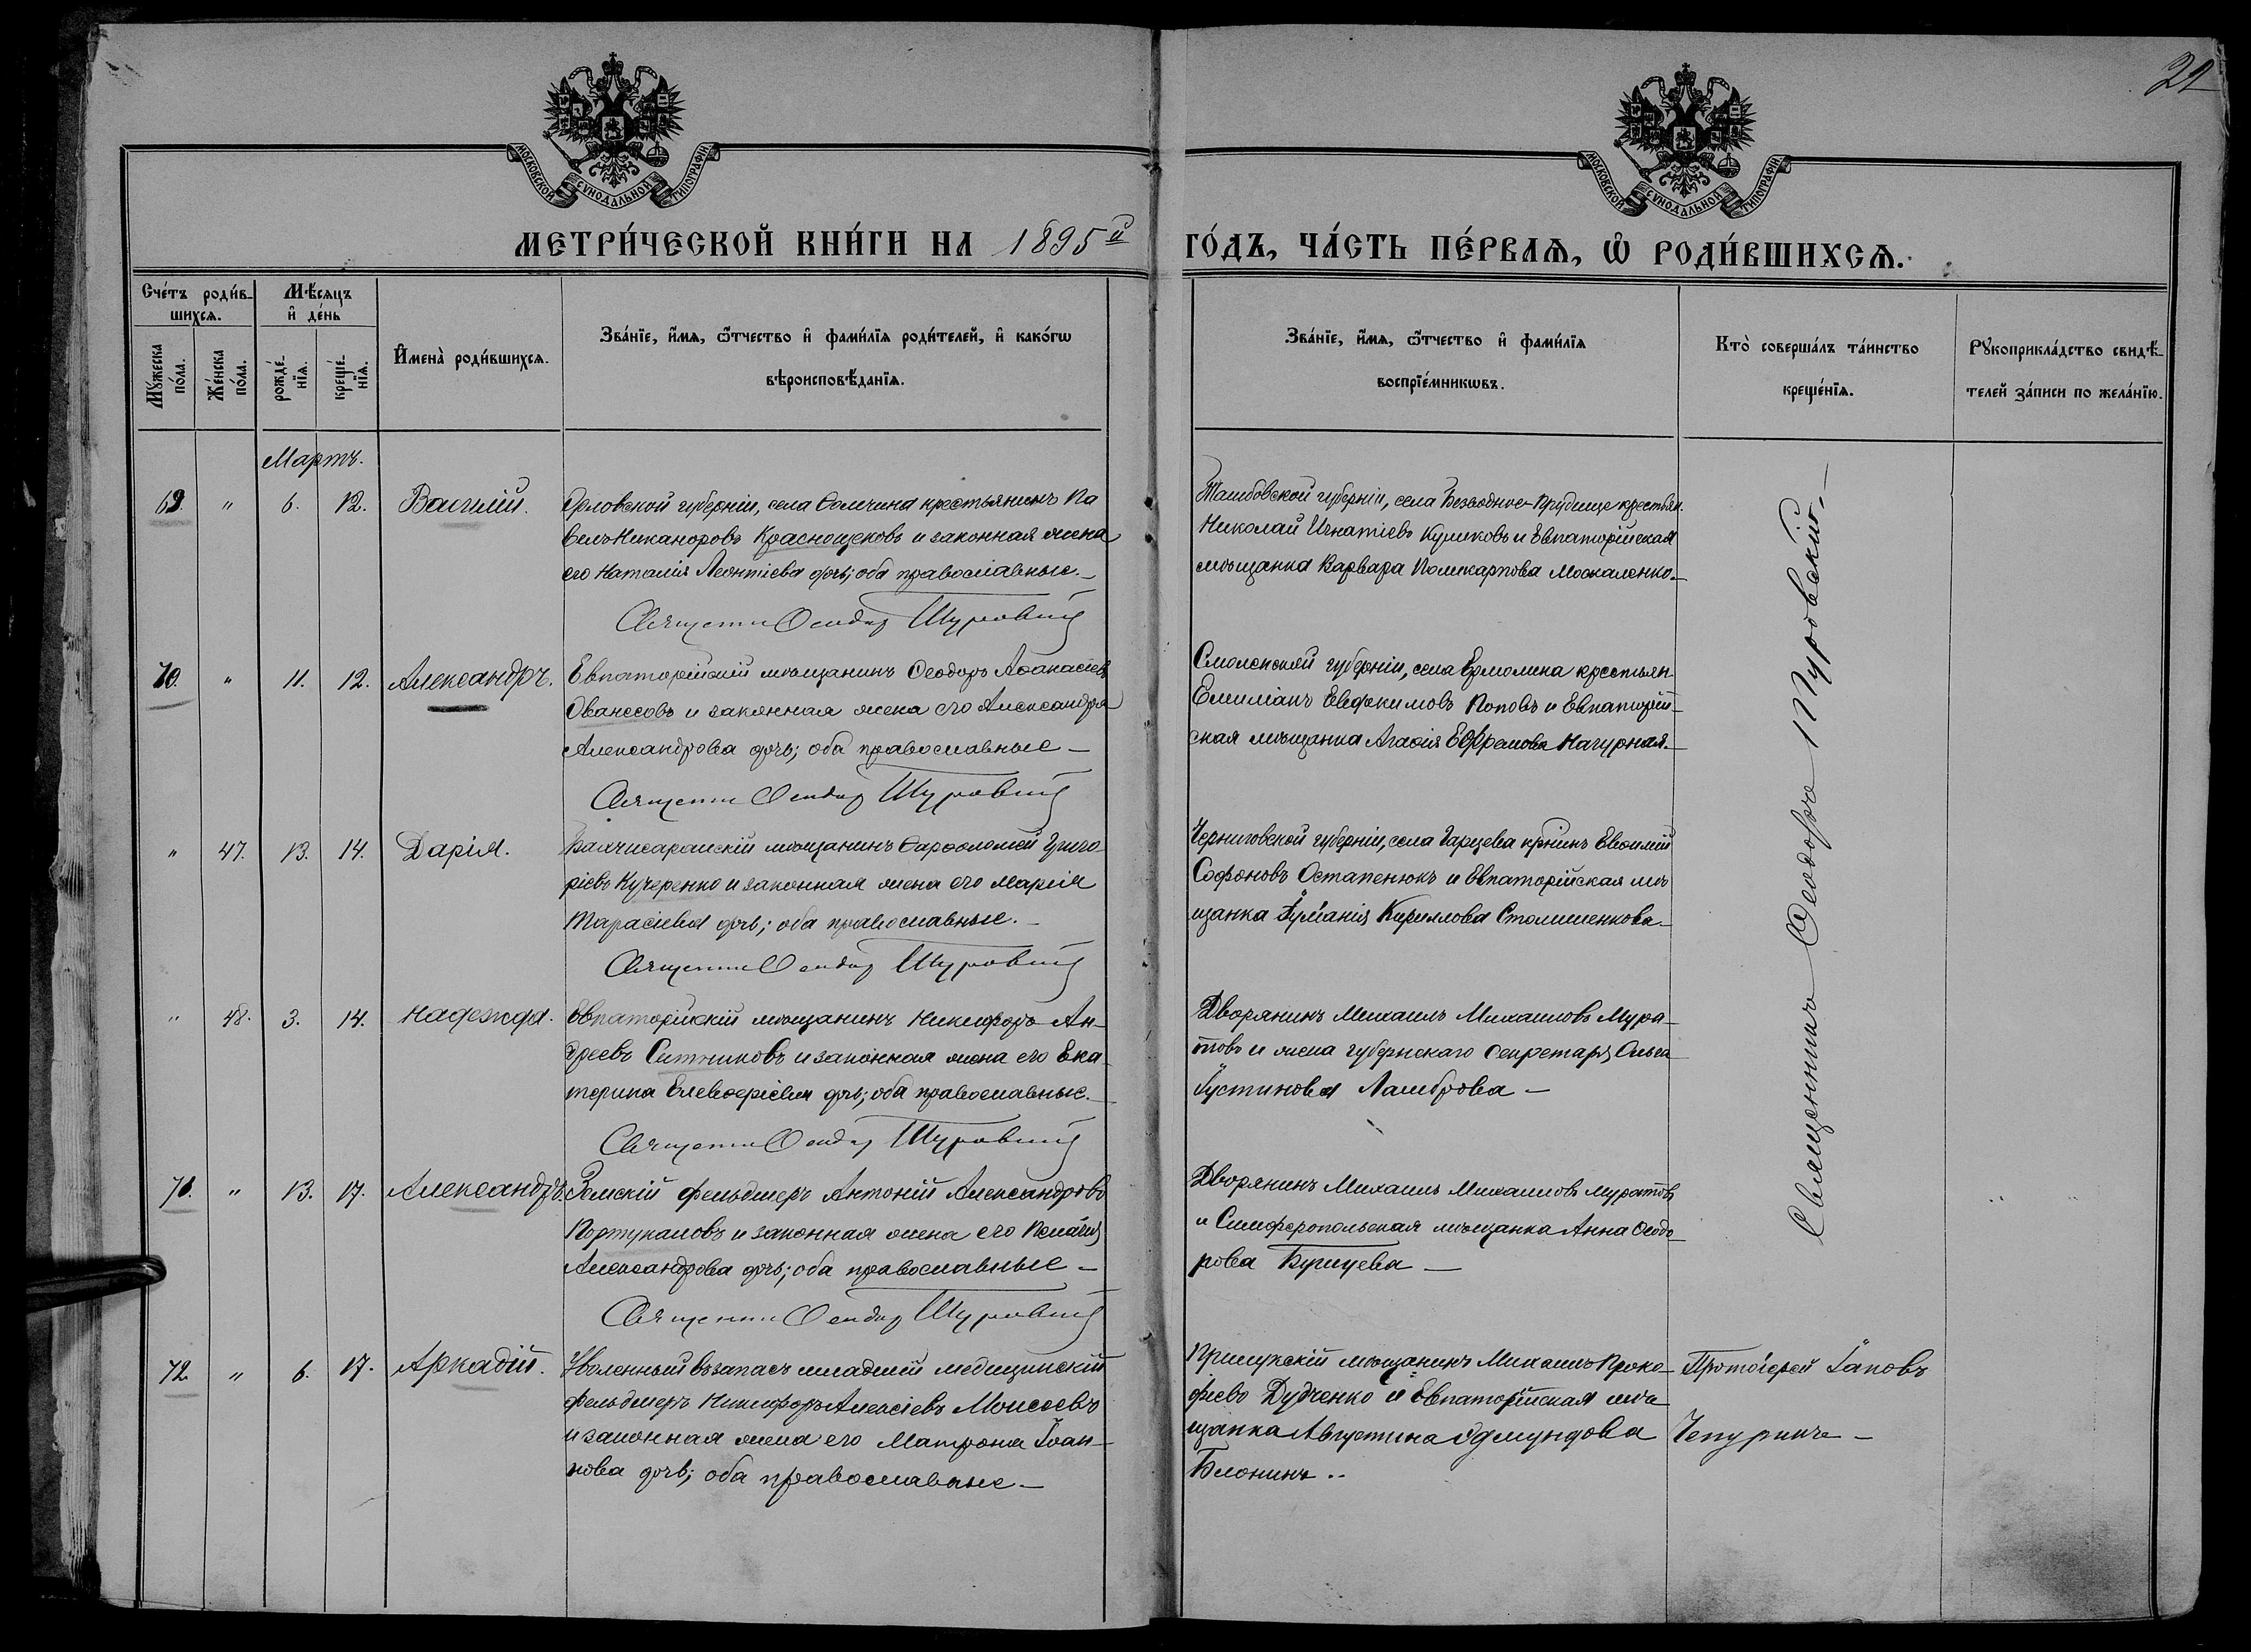 21
МОСКОВСКОЙ СѴНОДАЛЬНОЙ ТИПОГРАФІИ
МОСКОВСКОЙ СѴНОДАЛЬНОЙ ТИПОГРАФІИ
МЕТРИ́ЧЕСКОЙ КНИ́ГИ НА 1895й ГО́ДЪ, ЧА́СТЬ ПЕ́РВАѦ, Ѡ РОДИ́ВШИХСѦ.
Сче́тъ роди́в-
шихсѧ.
Мꙋжеска по́ла.
Же́нска по́ла.
Мѣ́сѧцъ
и де́нь
рожде́-
нїѧ.
креще́-
нїѧ.
Имена̀ роди́вшихсѧ.
Зва́нїе, и́мѧ, ѻ҆́тчество и фами́лїѧ роди́телей, и како́гѡ
вѣроисповѣ́данїѧ.
Зва́нїе, и́мѧ, ѻ҆́тчество и фами́лїѧ
воспрїе́мникѡвъ.
Кто̀ соверша́лъ та́инство
креще́нїѧ.
Рꙋкоприкла́дство свидѣ́-
телей за́писи по жела́нїю.
Мартъ.
69. " 6. 12. Василій.
Орловской губерніи, села Соличина крестьянинъ Па
велъ Никаноровъ Краснощековъ и законная жена
его Наталія Леонтіева дочь; оба православные.—
Священникъ Ѳеодоръ Шуровскій
Тамбовской губерніи, села Безводное-Прудище крестьян.
Николай Игнатіевъ Куликовъ и Евпаторійская
мѣщанка Варвара Поликарпова Москаленко.—
70. " 11. 12. Александръ.
Евпаторійскій мѣщанинъ Ѳеодоръ Аѳанасіевъ
Ованесовъ и законная жена его Александра
Александрова дочь; оба православные —
Священникъ Ѳеодоръ Шуровскій
Смоленской губерніи, села Ермолина крестьян.
Емиліанъ Евфокимовъ Поповъ и Евпаторій-
ская мѣщанка Агаѳія Ефремова Нагурная.—
" 47. 13. 14. Дарія.
Бахчисарайскій мѣщанинъ Варѳоломей Григо-
ріевъ Кучеренко и законная жена его Марія
Тарасіева дочь; оба православные.—
Священникъ Ѳеодоръ Шуровскій
Черниговской губерніи, села Гарцева кр-нинъ Евѳимій
Софоновъ Остапенюкъ и Евпаторійская мѣ
щанка Іуліанія Кириллова Столишенкова.—
" 48. 3. 14. Надежда.
Евпаторійскій мѣщанинъ Никифоръ Ан-
дреевъ Ситниковъ и законная жена его Ека-
терина Елевѳеріева дочь; оба православные.—
Священникъ Ѳеодоръ Шуровскій
Дворянинъ Михаилъ Михаиловъ Мура-
товъ и жена губернскаго секретаря Ольга
Іустинова Ламброва —
71. " 13. 17. Александръ.
Земскій фельдшеръ Антоній Александровъ
Портукаловъ и законная жена его Пелагія
Александрова дочь; оба православные —
Священникъ Ѳеодоръ Шуровскій
Дворянинъ Михаилъ Михаиловъ Муратовъ
и Симферопольская мѣщанка Анна Ѳеодо-
рова —
Священникъ Ѳеодоръ Шуровскій.—
72. " 6. 17. Аркадій.
Уволенный въ запасъ младшій медицинскій
фельдшеръ Никифоръ Алексіевъ Моисеевъ
и законная жена его Матрона Іоан-
нова дочь; оба православные —
Прилукскій мѣщанинъ Михаилъ Проко-
фіевъ Дудченко и Евпаторійская мѣ
щанка Августина Эдмундова
Блонинъ..
Протоіерей Іаковъ
Чепуринъ —